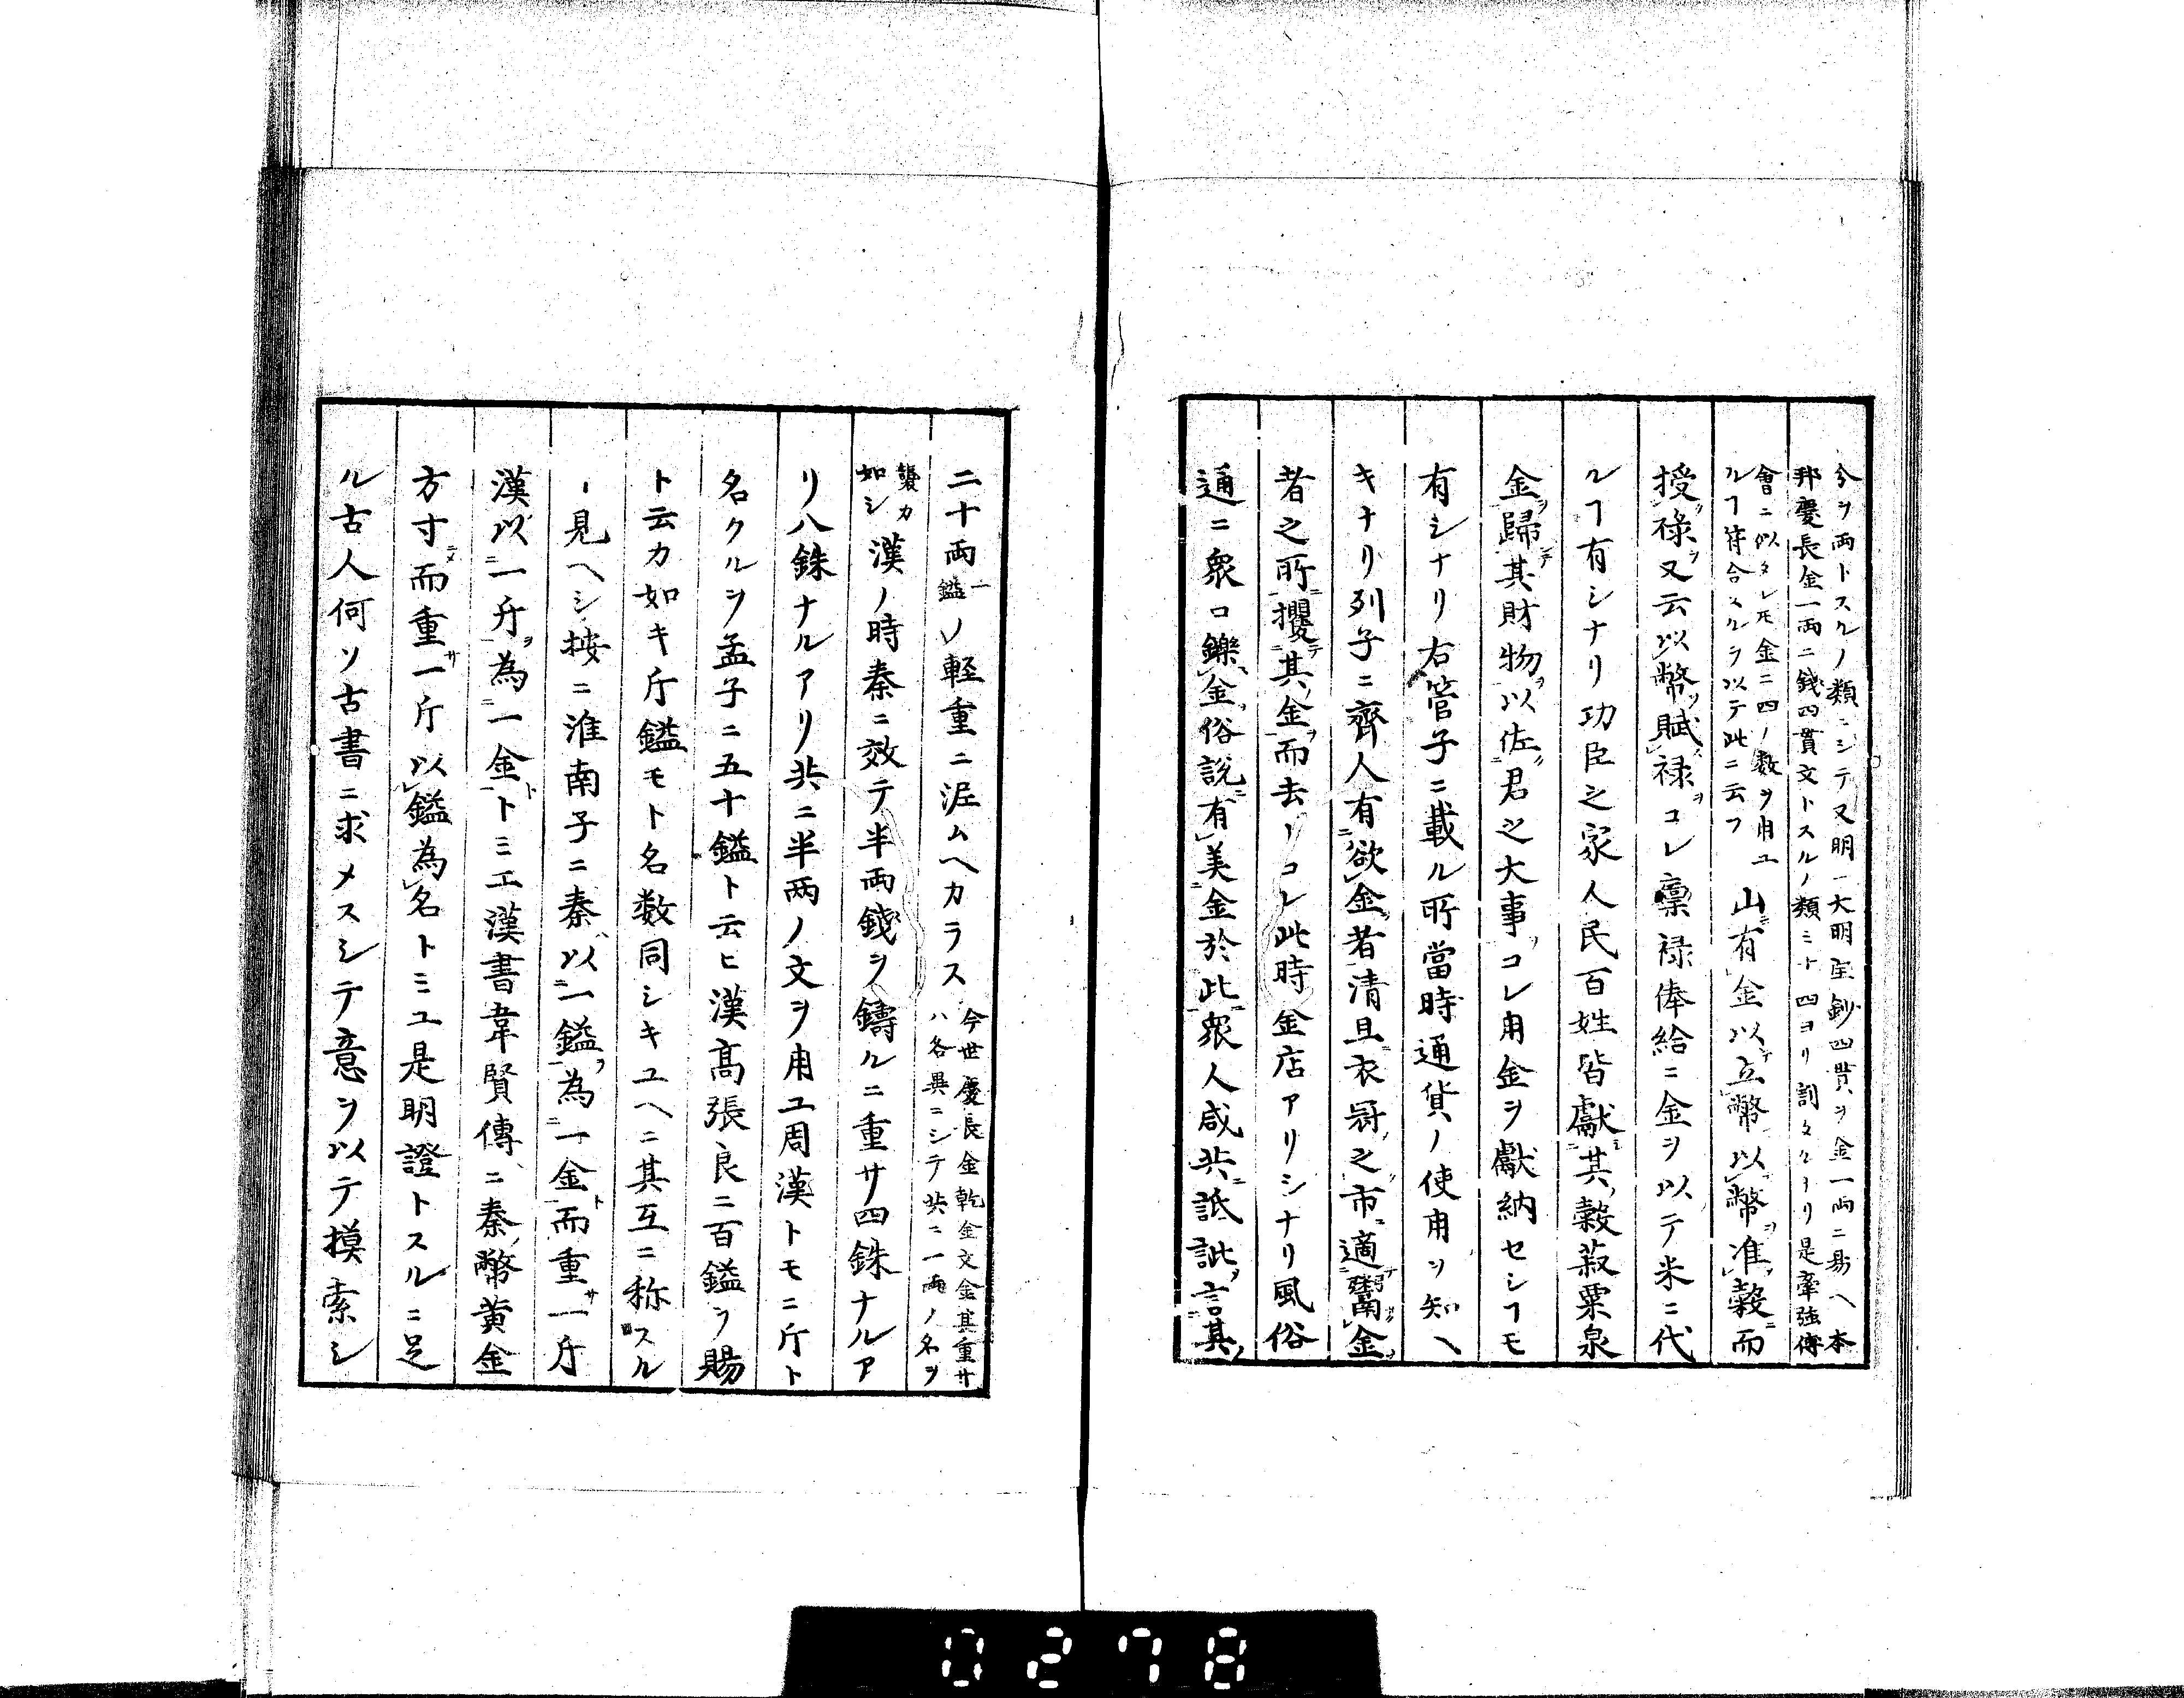 今ヲ両トスルノ類ニシテ又明ノ大明宝鈔四貫ヲ金一両ニ易ヘ本
邦慶長金一両ニ錢四貫文トスルノ類ミナ四ヨリ割タルナリ是牽強傅
會ニ似タレㇳモ金ニ四ノ数ヲ用ユ
ルヿ符合スルヲ以テ此ニ云フ
山有金以立幣以幣准穀而
授禄又云以幣賦禄コレ稟禄俸給ニ金ヲ以テ米ニ代
ルヿ有シナリ功臣之家人民百姓皆獻其穀菽粟泉
金歸其財物以佐君之大事コレ用金ヲ獻納セシヿモ
有シナリ右管子ニ載ル所當時通貨ノ使用ヲ知ヘ
キナリ列子ニ齊人有欲金者清旦衣冠之市適鬻金
者之所攫其金而去リコレ此時金店アリシナリ風俗
通ニ衆口鑠金俗説有美金於此衆人咸共詆訿言其
二十両一鎰ノ軽重ニ泥ムヘカラス
今世慶長金乾金文金其重サ
ハ各異ニシテ共ニ一両ノ名ヲ
襲カ
如シ
漢ノ時秦ニ效テ半両錢ヲ鑄ルニ重サ四銖ナルア
リ八銖ナルアリ共ニ半両ノ文ヲ用ユ周漢トモニ斤ト
名クルヲ孟子ニ五十鎰ト云ヒ漢高張良ニ百鎰ヲ賜
ト云カ如キ斤鎰モト名数同シキユヘニ其互ニ称スル
ヿ見ヘシ按ニ淮南子ニ秦以一鎰為一金而重一斤
漢以一斤為一金トミエ漢書韋賢傳ニ秦幣黄金
方寸而重一斤以鎰為名トミユ是明證トスルニ足
ル古人何ソ古書ニ求メスシテ意ヲ以テ摸索シ
0278